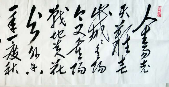 人生易老
天难老
岁岁重阳
今又重阳
战地黄花
分外香
一年一度秋